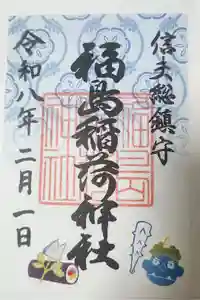 信夫総鎮守
福島稲荷神社
令和八年二月一日